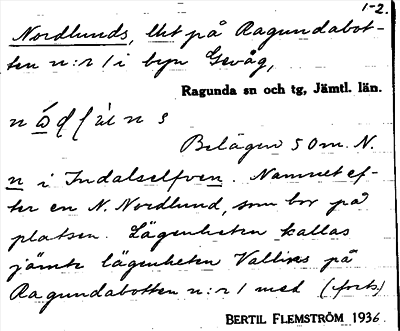 1-2.
Nordlunds, lht på Ragundabot-
ten n:r 1 i byn Gevåg,
Ragunda sn och tg, Jämtl. län.
Belägen 50 m. N.
n i Indalselfven. Namnet ef-
ter en N. Nordlund, som bor på
platsen. Lägenheten kallas
jämte lägenheten Vallires på
Ragundabotten n:r 1 med (forts)
BERTIL FLEMSTRÖM 1936.